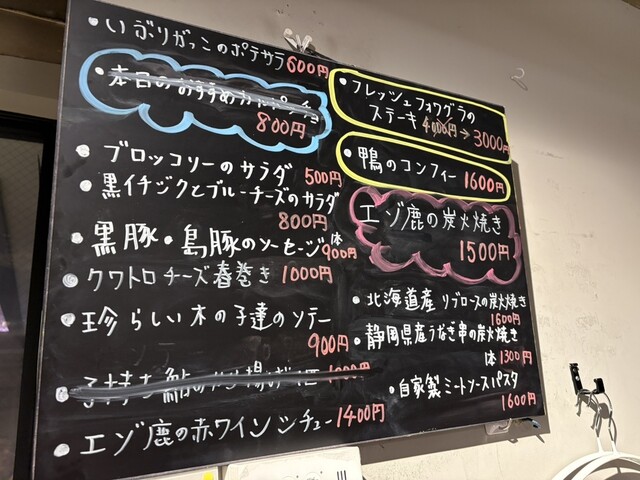 ・いぶりがっこのポテサラ 600円
・本日のおすすめカルパッチョ
800円
・ブロッコリーのサラダ 500円
・黒イチジクとブルーチーズのサラダ
800円
・黒豚・島豚のソーセージ 1本 900円
・クワトロチーズ春巻き 1000円
・珍らしい木の子達のソテー
900円
・子持ち鮎のから揚げ 1匹 1000円
・エゾ鹿の赤ワインシチュー 1400円
・フレッシュフォワグラの
ステーキ 4000円→3000円
・鴨のコンフィー 1600円
エゾ鹿の炭火焼き
1500円
・北海道産リブロースの炭火焼き
1600円
・静岡県産うなぎ串の炭火焼き
1本 1300円
・自家製ミートソースパスタ
1600円